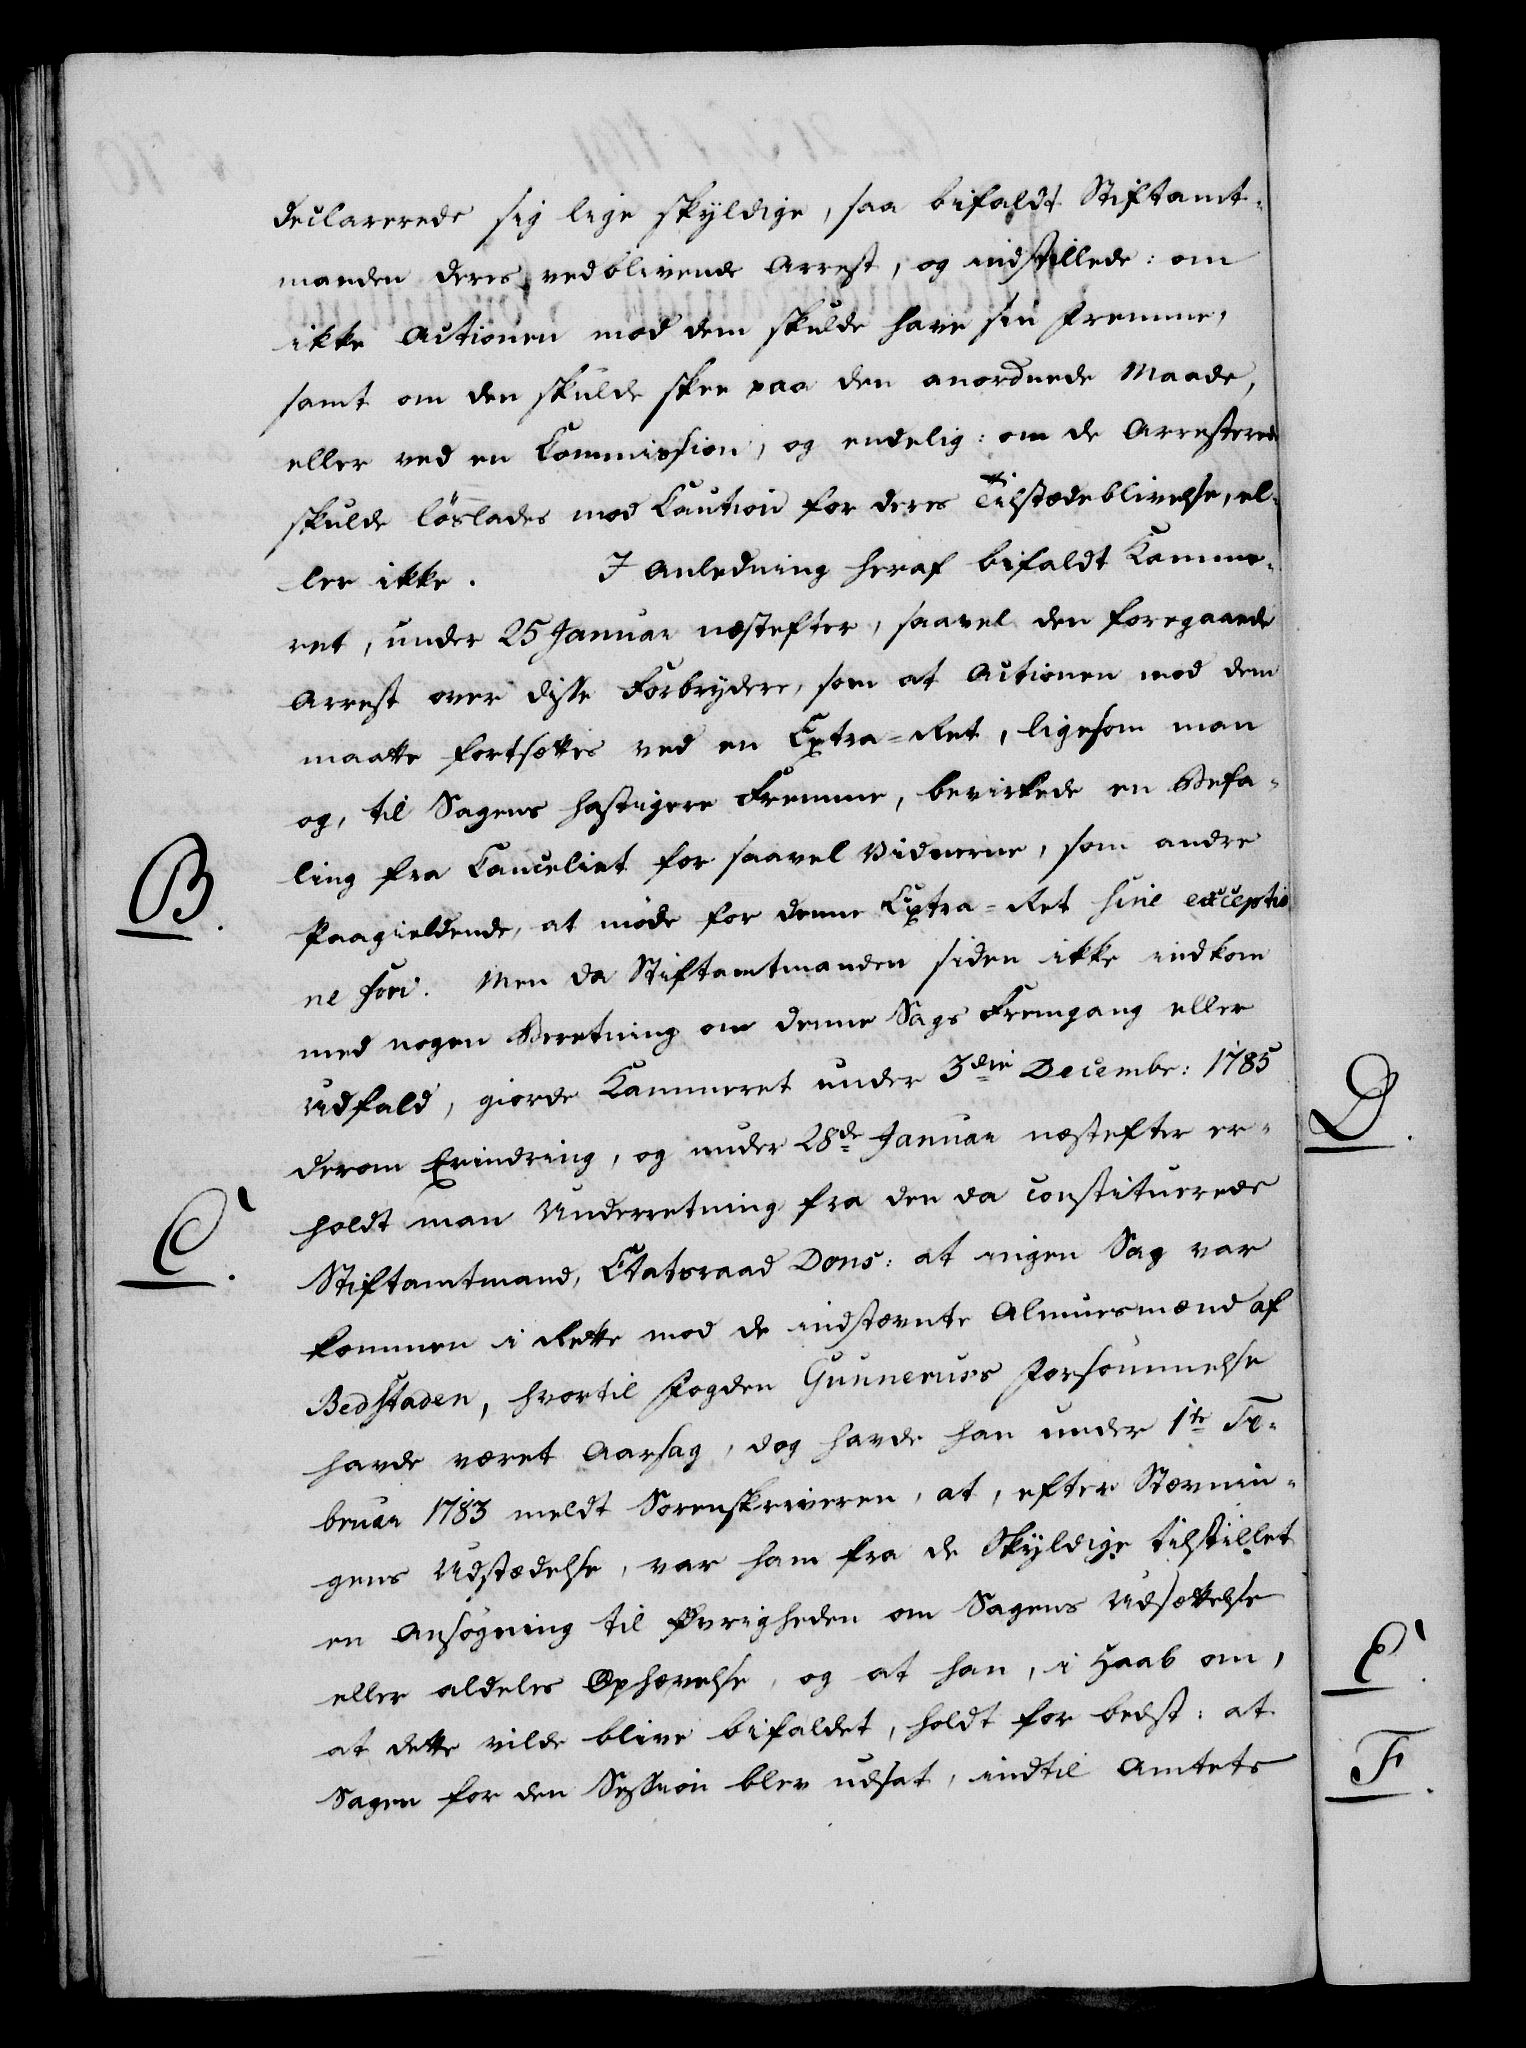 declarerede sig lige skyldige, saa bifaldt Stiftamt-
manden deres vedblivende Arrest, og indstillede: om
ikke Actionen mod dem skulde have sin Fremme,
samt om den skulde skee paa den anordnede Maade,
eller ved en Commission, og endelig: om de Arresterede
skulde löslades mod Caution for deres Tilstædeblivelse, el-
ler ikke. I Anledning heraf bifaldt Kamme-
ret, under 25 Januar næstefter, saavel den foregaaende
Arrest over disse Forbrydere, som at Actionen mod dem
maatte fortsættes ved en Extra-Ret, ligesom man
og, til Sagens hastigere Fremme, bevirkede en Befa-
ling fra Canceliet for saavel Vidnerne, som andre
B.
Paagieldende, at möde for denne Extra-Ret sine exceptio
ne fori. Men da Stiftamtmanden siden ikke indkom
med nogen Beretning om denne Sags Fremgang eller
Udfald, giorde Kammeret under 3die Decembr: 1785
D.
derom Erindring, og under 28de Januar næstefter er-
holdt man Underretning fra den da constituerede
C.
Stiftamtmand, Etatsraad Dons: at ingen Sag var
kommen i Rette mod de indstævnte Almuesmænd af
Bedstaden, hvortil Fogden Gunneruses Forsömmelse
havde været Aarsag, dog havde han under 1te Fe-
bruar 1783 meldt Sorenskriveren, at, efter Stævnin-
gens Udstædelse, var ham fra de Skyldige tilstillet
en Ansögning til Øvrigheden om Sagens Udsættelse
eller aldeles Ophævelse, og at han, i Haab om,
E.
at dette vilde blive bifaldet, holdt for bedst: at
Sagen for den Session blev udsat, indtil Amtets
F.